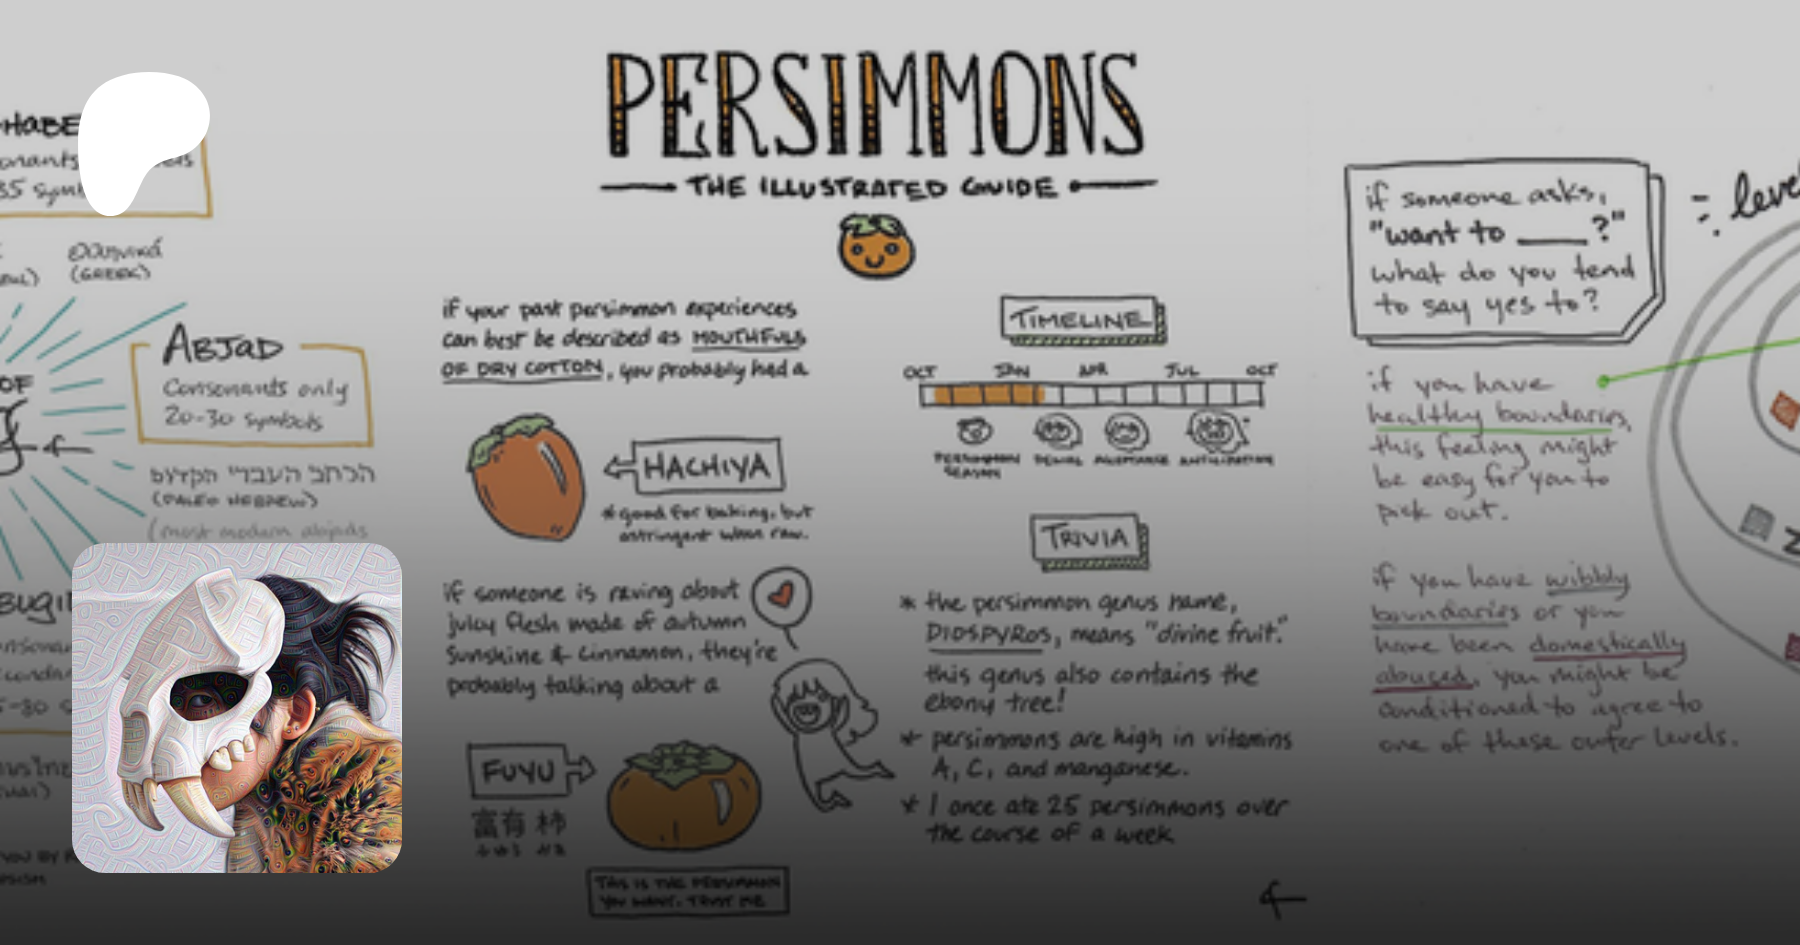 35
ελληνικά
(GREEK)
OF
ABJAD
Consonants only
20-30 symbols
הכתב העברי הקדום
(PALEO HEBREW)
(most modern abjads
PERSIMMONS
THE ILLUSTRATED GUIDE
if your past persimmon experiences
can best be described as MOUTHFULS
OF DRY COTTON, you probably had a
HACHIYA
*good for baking, but
astringent when raw.
if someone is raving about
juicy flesh made of autumn
sunshine & cinnamon, they're
probably talking about a
FUYU
富有 柿
THIS IS THE PERSIMMON
YOU WANT. TRUST ME
TIMELINE
OCT JAN APR JUL OCT
PERSIMMON SEASON
DENIAL
ACCEPTANCE
ANTICIPATION
TRIVIA
* the persimmon genus name,
DIOSPYROS, means "divine fruit."
this genus also contains the
ebony tree!
* persimmons are high in vitamins
A, C, and manganese.
* I once ate 25 persimmons over
the course of a week
if someone asks,
"want to ____?"
what do you tend
to say yes to?
if you have
healthy boundaries,
this feeling might
be easy for you to
pick out.
if you have wibbly
boundaries or you
have been domestically
abused, you might be
conditioned to agree to
one of these outer levels.